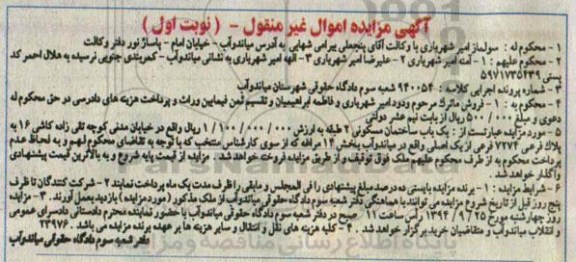 آگهی مزایده اموال غیر منقول - ( نوبت اول )
۱ - محکوم له : سولماز امیر شهریاری با وکالت آقای پنجعلی بیرامی شهابی به آدرس میاندوآب - خیابان امام - پاساژ نور دفتر وکالت
۲ - محکوم علیهم : ۱ - آمنه امیر شهریاری ۲ - علیرضا امیر شهریاری ۳ - الهه امیر شهریاری به نشانی میاندوآب - کمربندی جنوبی نرسیده به هلال احمر کد
پستی ۵۹۷۱۷۳۵۴۳۹
۳ - شماره پرونده اجرایی کلاسه : ۹۴۰۰۵۴ شعبه سوم دادگاه حقوقی شهرستان میاندوآب
۴ - محکوم به : ۱ - فروش ماترک مرحوم ودود امیر شهریاری و فاطمه ابراهیمیان و تقسیم ثمن فیمابین وراث و پرداخت هزینه های دادرسی در حق محکوم له
دعوی و مبلغ ۵۰۰/۰۰۰ ریال از بابت نیم عشر دولتی
۵ - مورد مزایده عبارتست از : یک باب ساختمان مسکونی ۲ طبقه به ارزش ۱/۱۰۰/۰۰۰/۰۰۰ ریال واقع در خیابان مدنی کوچه تقی زاده کاشی ۱۶ به
پلاک فرعی ۷۲۷۴ فرعی از یک اصلی واقع در میاندوآب بخش ۱۴ مراغه که از سوی کارشناس منتخب که با توجه به تقاضای محکوم لهم و به لحاظ عدم
پرداخت محکوم به از طرف محکوم علیهم ملک فوق توقیف و از طریق مزایده فروخته خواهد شد . مزایده از قیمت پایه شروع و به بالاترین قیمت پیشنهادی
واگذار خواهد شد .
۶ - شرایط مزایده : ۱ - برنده مزایده بایستی ده درصد مبلغ پیشنهادی را فی المجلس و مابقی را ظرف مدت یک ماه پرداخت نمایند ۲ - شرکت کنندگان تا ظرف
پنج روز قبل از تاریخ شروع مزایده می توانند با هماهنگی دفتر شعبه سوم دادگاه حقوقی میاندوآب از ملک مذکور ( مورد مزایده ) بازدید بعمل آورند . ۳ - مزایده
روز چهارشنبه مورخ ۱۳۹۴/۹/۲۵ راس ساعت ۱۱ صبح در دفتر شعبه سوم دادگاه حقوقی میاندوآب با حضور نماینده محترم دادستانی دادسرای عمومی
و انقلاب میاندوآب و متقاضیان خرید برگزار خواهد شد . ۴ - کلیه هزینه های نقل و انتقال و سایر هزینه ها بر عهده برنده مزایده می باشد . ۲۳۹۷۶
دفتر شعبه سوم دادگاه حقوقی میاندوآب
پایگاه اطلاع رسانی مناقصه و مزایده